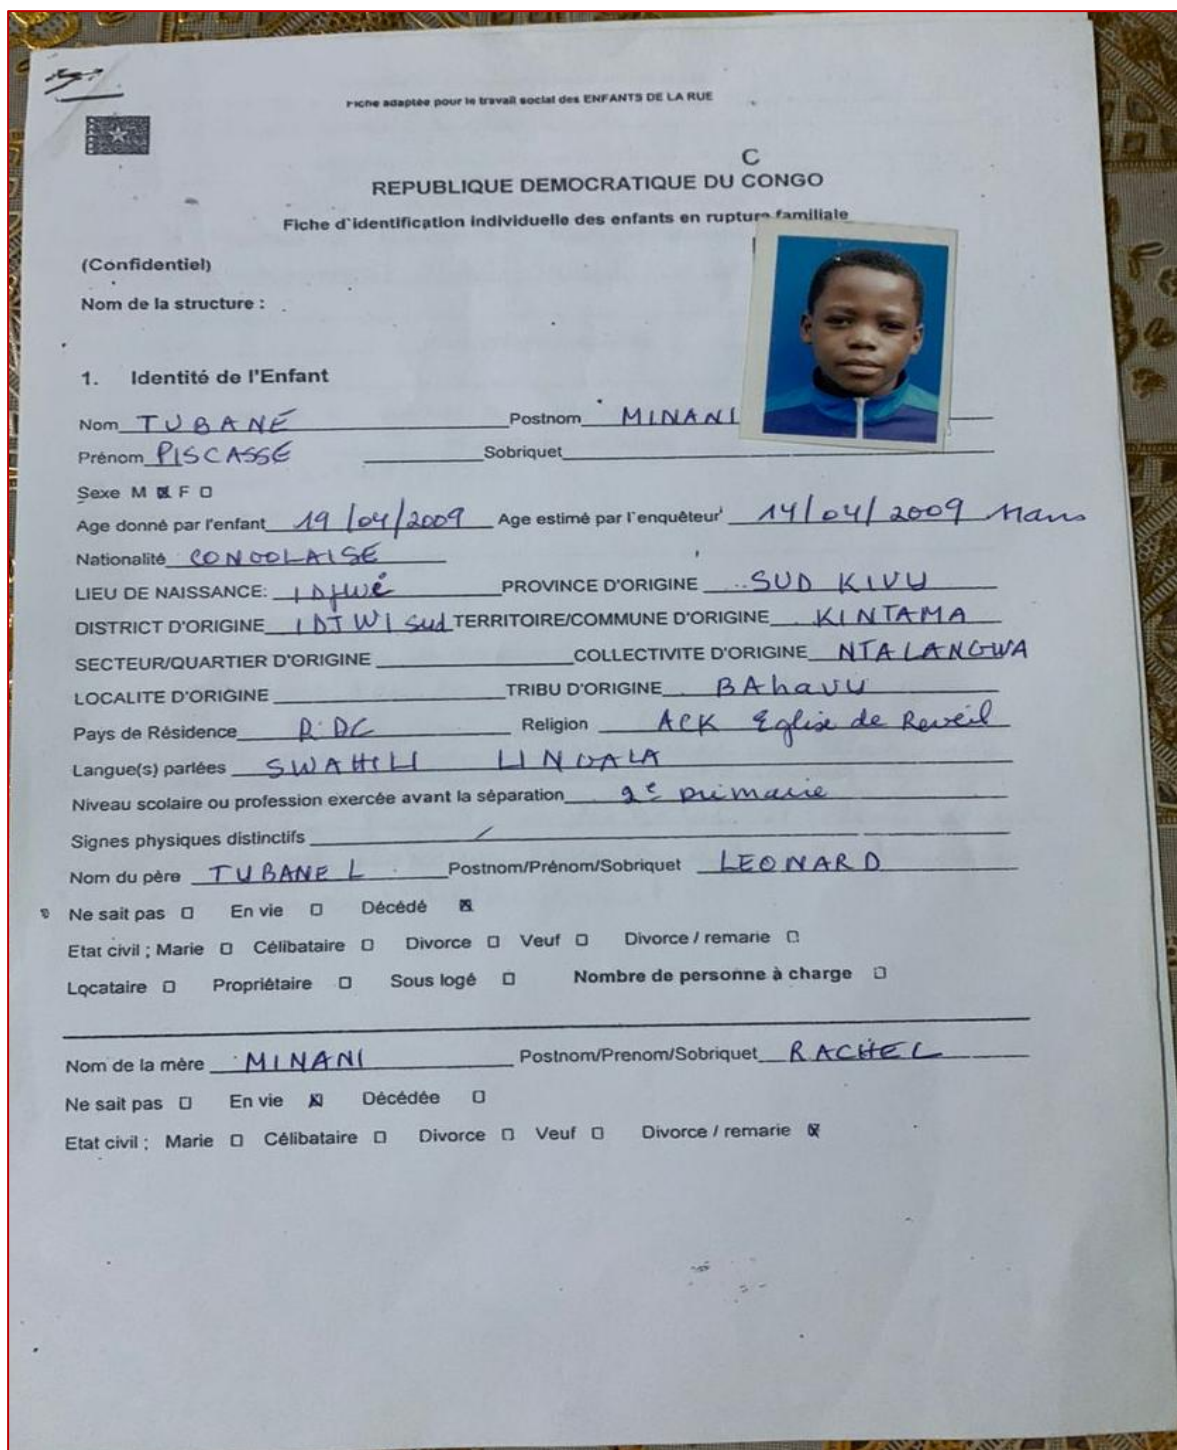 Fiche adaptée pour le travail social des ENFANTS DE LA RUE
C
REPUBLIQUE DEMOCRATIQUE DU CONGO
Fiche d`identification individuelle des enfants en rupture familiale
(Confidentiel)
Nom de la structure :
1. Identité de l'Enfant
Nom TUBANE Postnom MINANI
Prénom PISCASSE Sobriquet
Sexe M F
Age donné par l'enfant 19/04/2009 Age estimé par l`enquêteur 14/04/2009
Nationalité CONGOLAISE
LIEU DE NAISSANCE: Idjwé PROVINCE D'ORIGINE SUD KIVU
DISTRICT D'ORIGINE IDJWI Sud TERRITOIRE/COMMUNE D'ORIGINE KINTAMA
SECTEUR/QUARTIER D'ORIGINE COLLECTIVITE D'ORIGINE NTALANGWA
LOCALITE D'ORIGINE TRIBU D'ORIGINE BAhavu
Pays de Résidence RDC Religion ACK Eglise de Reveil
Langue(s) parlées SWAHILI LINGALA
Niveau scolaire ou profession exercée avant la séparation 2e primaire
Signes physiques distinctifs /
Nom du père TUBANE L Postnom/Prénom/Sobriquet LEONARD
Ne sait pas En vie Décédé
Etat civil ; Marie Célibataire Divorce Veuf Divorce / remarie
Locataire Propriétaire Sous logé Nombre de personne à charge
Nom de la mère MINANI Postnom/Prenom/Sobriquet RACHEL
Ne sait pas En vie Décédée
Etat civil ; Marie Célibataire Divorce Veuf Divorce / remarie